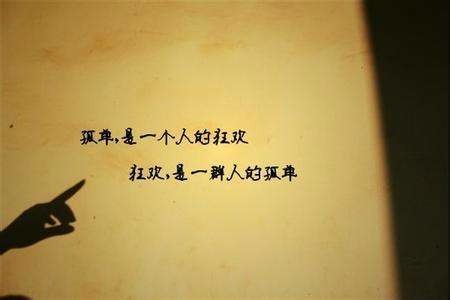 孤单,是一个人的狂欢
狂欢,是一群人的孤单